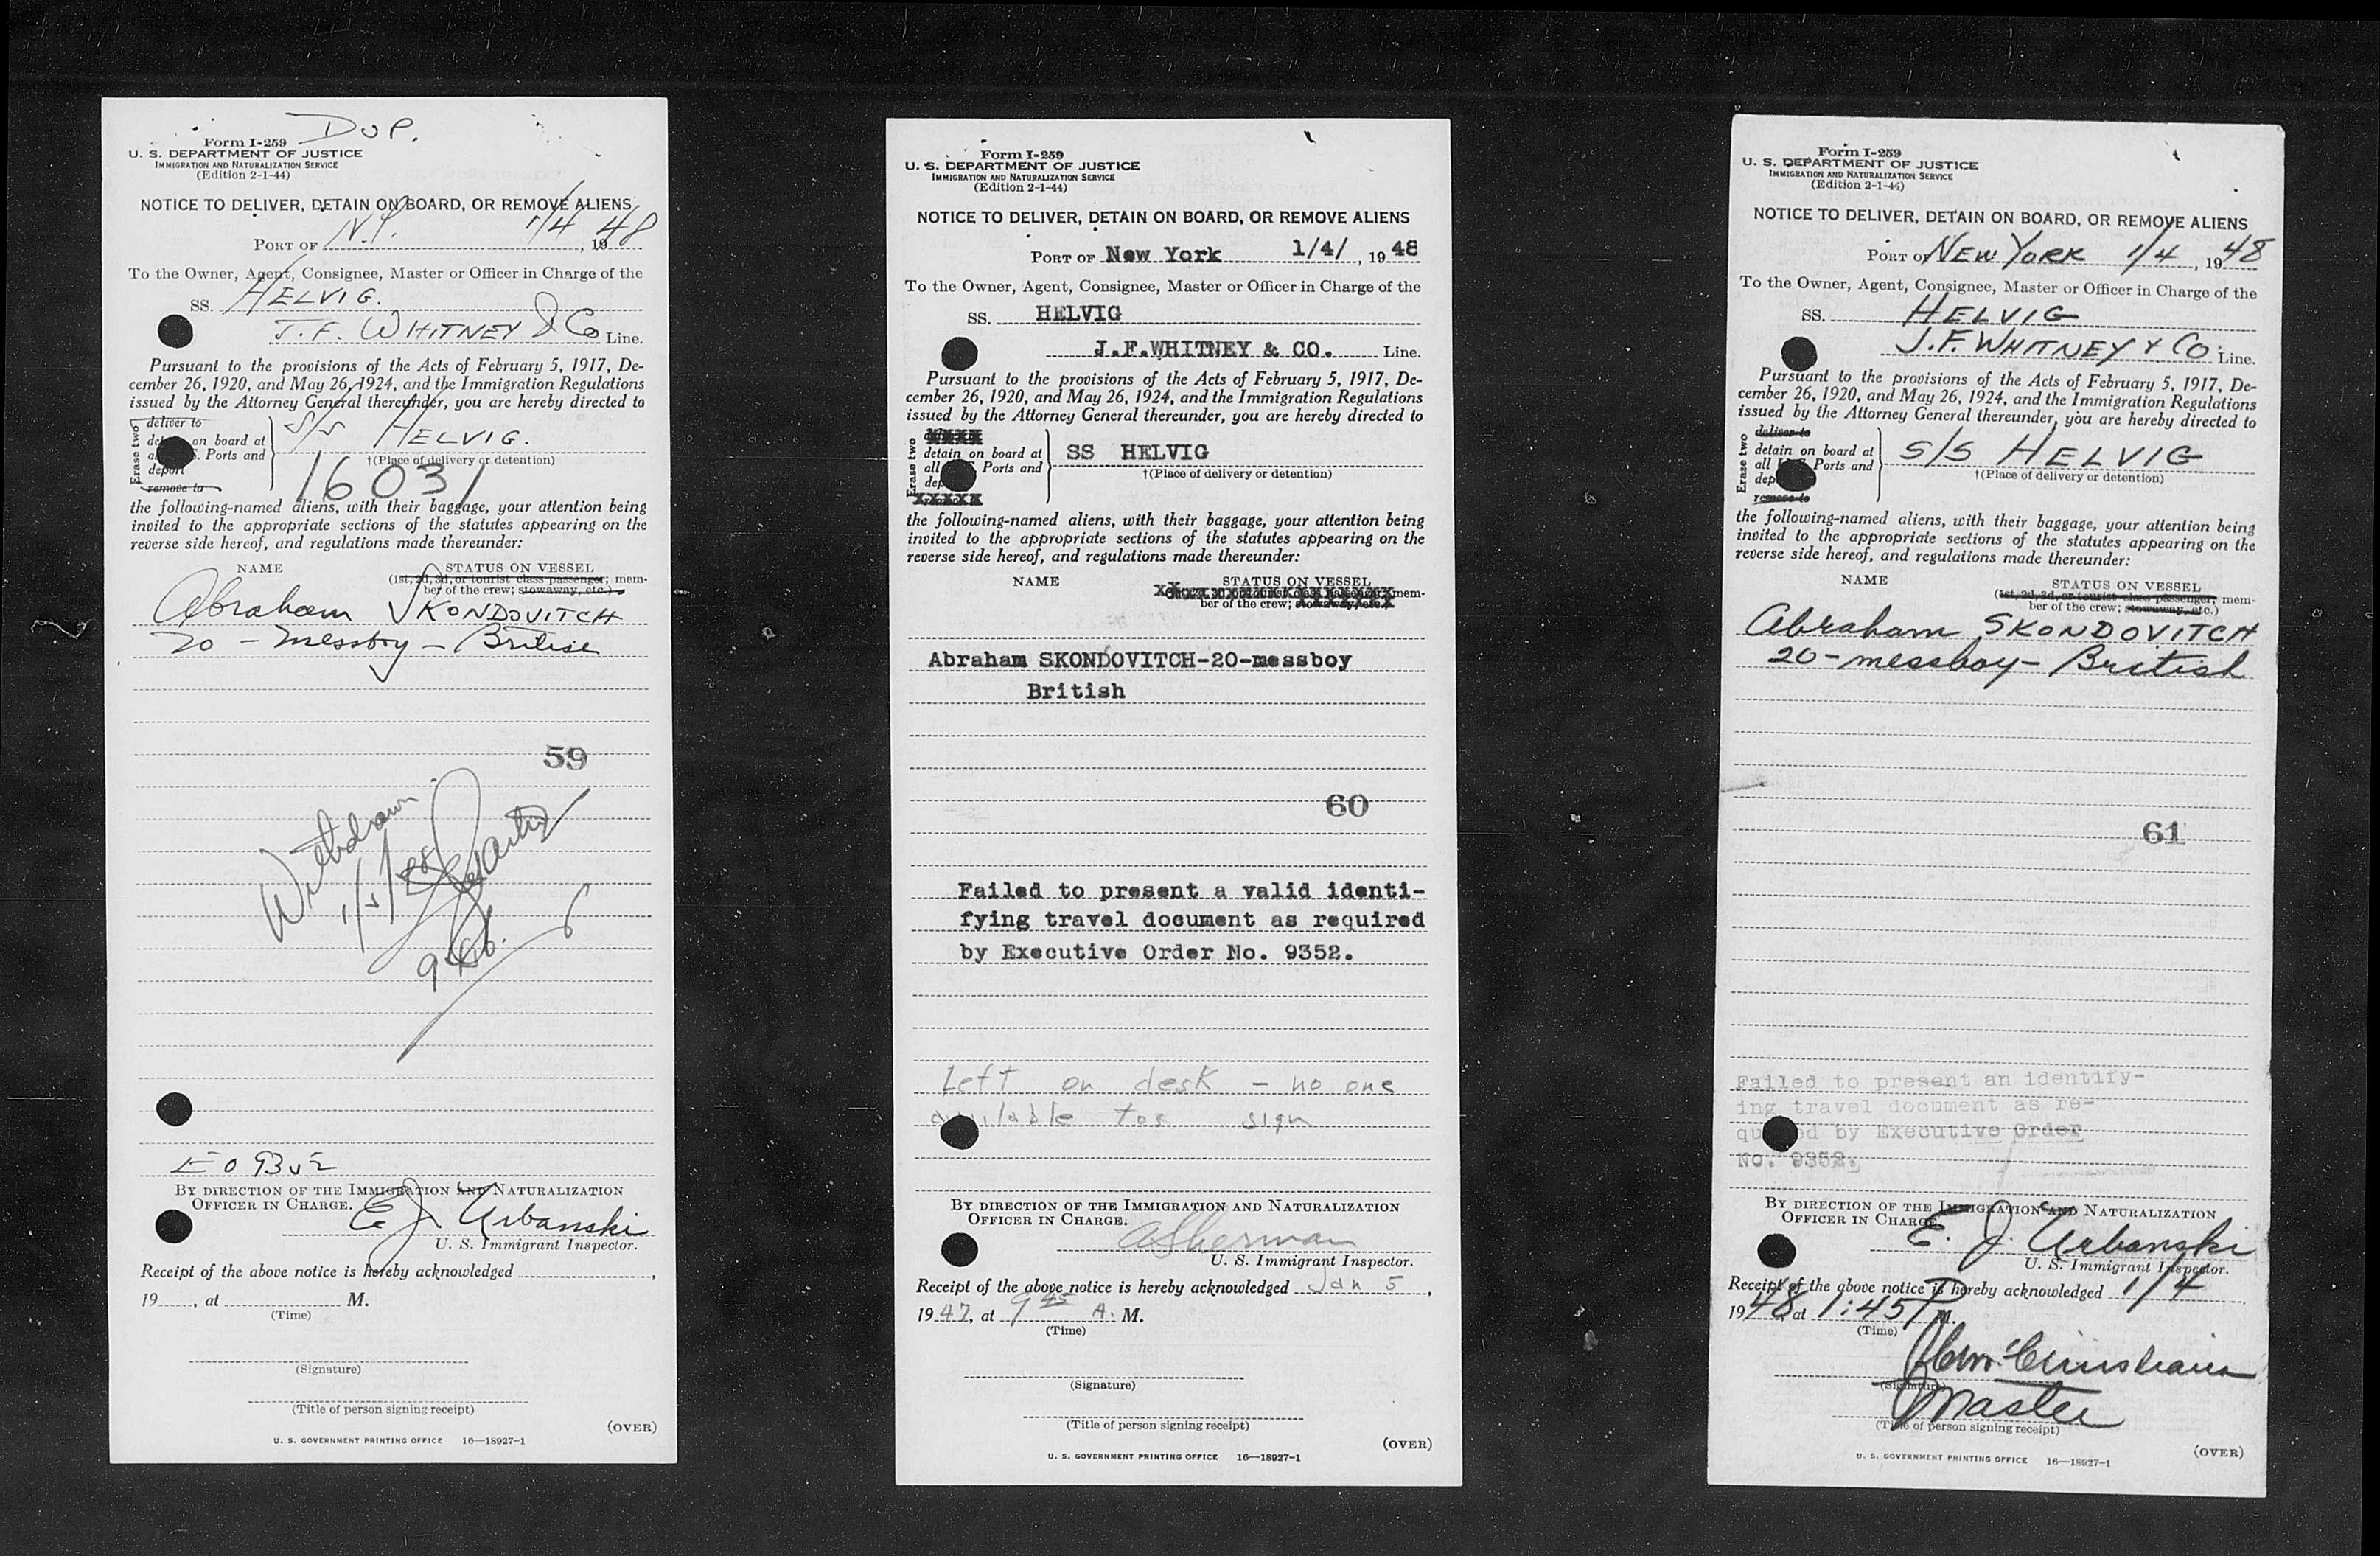 DUP.
Form I-259
U. S. DEPARTMENT OF JUSTICE
IMMIGRATION AND NATURALIZATION SERVICE
(Edition 2-1-44)
NOTICE TO DELIVER, DETAIN ON BOARD, OR REMOVE ALIENS
PORT OF N.Y. 1/4, 1948
To the Owner, Agent, Consignee, Master or Officer in Charge of the
SS. HELVIG.
J. F. WHITNEY & Co Line.
Pursuant to the provisions of the Acts of February 5, 1917, De-
cember 26, 1920, and May 26, 1924, and the Immigration Regulations
issued by the Attorney General thereunder, you are hereby directed to
Erase two
deliver to
on board at
S. Ports and
deport
remove to
S/S HELVIG.
†(Place of delivery or detention)
16031
the following-named aliens, with their baggage, your attention being
invited to the appropriate sections of the statutes appearing on the
reverse side hereof, and regulations made thereunder:
NAME STATUS ON VESSEL
(1st, 2d, 3d, or tourist class passenger; mem-
ber of the crew; stowaway, etc.)
Abraham SKONDOVITCH
20 - messboy - British
59
Withdrawn
1/5/48
EO 9352
BY DIRECTION OF THE IMMIGRATION AND NATURALIZATION
OFFICER IN CHARGE.
E. J. Urbanski
U. S. Immigrant Inspector.
Receipt of the above notice is hereby acknowledged ,
19 , at M.
(Time)
(Signature)
(Title of person signing receipt)
(OVER)
U. S. GOVERNMENT PRINTING OFFICE 16—18927-1
Form I-259
U. S. DEPARTMENT OF JUSTICE
IMMIGRATION AND NATURALIZATION SERVICE
(Edition 2-1-44)
NOTICE TO DELIVER, DETAIN ON BOARD, OR REMOVE ALIENS
PORT OF New York 1/4/, 19 48
To the Owner, Agent, Consignee, Master or Officer in Charge of the
SS. HELVIG
J.F.WHITNEY & CO. Line.
Pursuant to the provisions of the Acts of February 5, 1917, De-
cember 26, 1920, and May 26, 1924, and the Immigration Regulations
issued by the Attorney General thereunder, you are hereby directed to
Erase two
detain on board at
all Ports and
SS HELVIG
†(Place of delivery or detention)
the following-named aliens, with their baggage, your attention being
invited to the appropriate sections of the statutes appearing on the
reverse side hereof, and regulations made thereunder:
NAME STATUS ON VESSEL
mem-
ber of the crew; stowaway, etc.)
Abraham SKONDOVITCH-20-messboy
British
60
Failed to present a valid identi-
fying travel document as required
by Executive Order No. 9352.
Left on desk - no one
available to sign
BY DIRECTION OF THE IMMIGRATION AND NATURALIZATION
OFFICER IN CHARGE.
A Sherman
U. S. Immigrant Inspector.
Receipt of the above notice is hereby acknowledged Jan 5,
19 47, at 9 45 A. M.
(Time)
(Signature)
(Title of person signing receipt)
(OVER)
U. S. GOVERNMENT PRINTING OFFICE 16—18927-1
Form I-259
U. S. DEPARTMENT OF JUSTICE
IMMIGRATION AND NATURALIZATION SERVICE
(Edition 2-1-44)
NOTICE TO DELIVER, DETAIN ON BOARD, OR REMOVE ALIENS
PORT OF NEW YORK 1/4, 1948
To the Owner, Agent, Consignee, Master or Officer in Charge of the
SS. HELVIG
J.F. WHITNEY & Co. Line.
Pursuant to the provisions of the Acts of February 5, 1917, De-
cember 26, 1920, and May 26, 1924, and the Immigration Regulations
issued by the Attorney General thereunder, you are hereby directed to
Erase two
deliver to
detain on board at
all Ports and
remove to
S/S HELVIG
†(Place of delivery or detention)
the following-named aliens, with their baggage, your attention being
invited to the appropriate sections of the statutes appearing on the
reverse side hereof, and regulations made thereunder:
NAME STATUS ON VESSEL
(1st, 2d, 3d, or tourist class passenger; mem-
ber of the crew; stowaway, etc.)
Abraham SKONDOVITCH
20 - messboy - British
61
Failed to present an identify-
ing travel document as re-
quired by Executive Order
No. 9352.
BY DIRECTION OF THE IMMIGRATION AND NATURALIZATION
OFFICER IN CHARGE.
E. J. Urbanski
U. S. Immigrant Inspector.
Receipt of the above notice is hereby acknowledged 1/4
1948 at 1:45 P M.
(Time)
(Signature)
Master
(Title of person signing receipt)
(OVER)
U. S. GOVERNMENT PRINTING OFFICE 16—18927-1